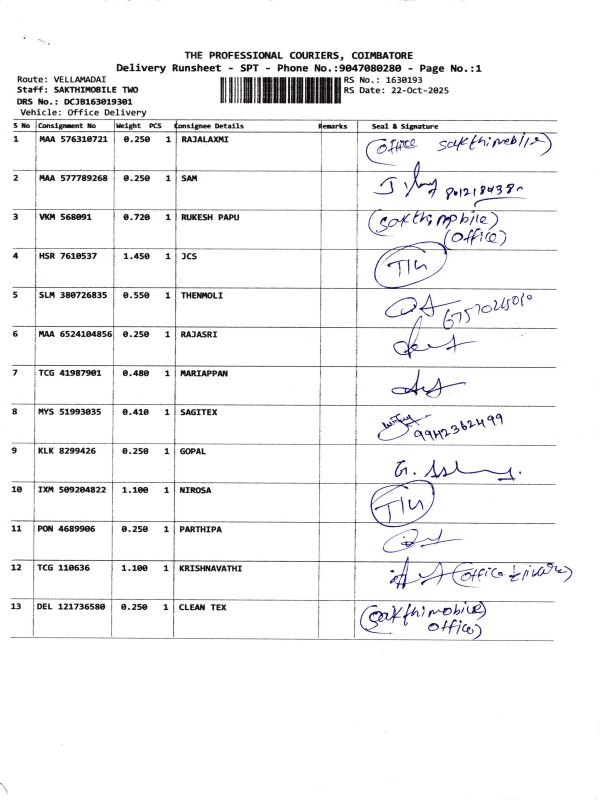 THE PROFESSIONAL COURIERS, COIMBATORE
Delivery Runsheet - SPT - Phone No.:9047080280 - Page No.:1
Route: VELLAMADAI RS No.: 1630193
Staff: SAKTHIMOBILE TWO RS Date: 22-Oct-2025
DRS No.: DCJB163019301
Vehicle: Office Delivery
S No Consignment No Weight PCS Consignee Details Remarks Seal & Signature
1 MAA 576310721 0.250 1 RAJALAXMI (office sakthimobile)
2 MAA 577789268 0.250 1 SAM
3 VKM 568091 0.720 1 RUKESH PAPU (sakthimobile)
(office)
4 HSR 7610537 1.450 1 JCS
5 SLM 380726835 0.550 1 THENMOLI
6 MAA 6524104856 0.250 1 RAJASRI
7 TCG 41987901 0.480 1 MARIAPPAN
8 MYS 51993035 0.410 1 SAGITEX 9942362499
9 KLK 8299426 0.250 1 GOPAL
10 IXM 509204822 1.100 1 NIROSA
11 PON 4689906 0.250 1 PARTHIPA
12 TCG 110636 1.100 1 KRISHNAVATHI (office
13 DEL 121736580 0.250 1 CLEAN TEX (sakthimobile)
office)